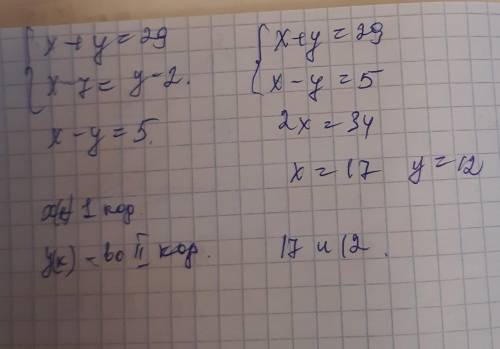 x + y = 29
x - 7 = y - 2.
x - y = 5.
x + y = 29
x - y = 5
2x = 34
x = 17 y = 12
1 кор.
y(к) - во II кор.
17 и 12.